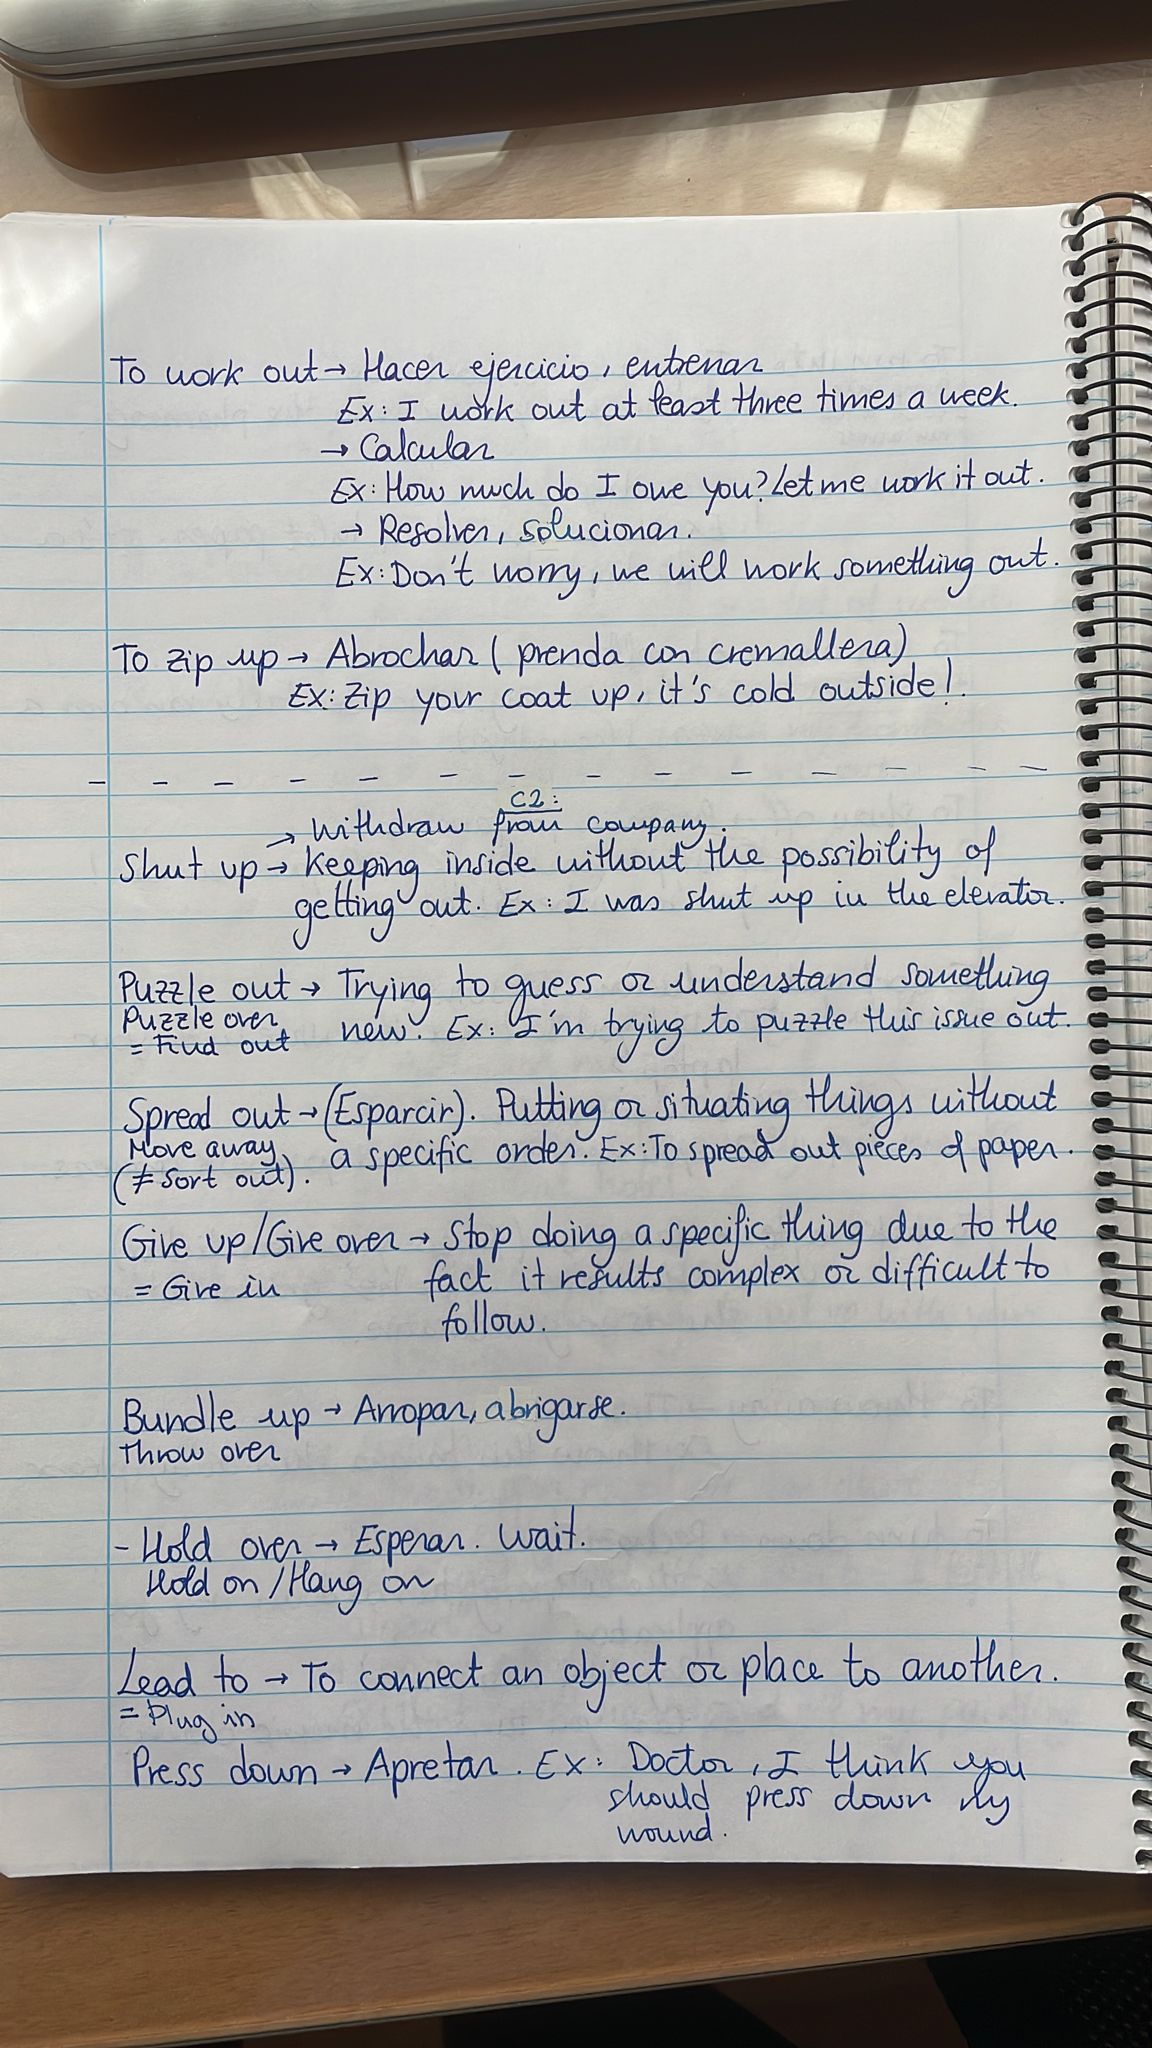 To work out → Hacer ejercicio, entrenar
Ex: I work out at least three times a week.
→ Calcular
Ex: How much do I owe you? Let me work it out.
→ Resolver, solucionar.
Ex: Don't worry, we will work something out.
To zip up → Abrochar (prenda con cremallera)
Ex: Zip your coat up, it's cold outside!
C2:
→ Withdraw from company.
Shut up → Keeping inside without the possibility of
getting out. Ex: I was shut up in the elevator.
Puzzle out → Trying to guess or understand something
Puzzle over new. Ex: I'm trying to puzzle this issue out.
= Find out
Spread out → (Esparcir). Putting or situating things without
Move away a specific order. Ex: To spread out pieces of paper.
(≠ Sort out).
Give up/Give over → Stop doing a specific thing due to the
= Give in fact it results complex or difficult to
follow.
Bundle up → Arropar, abrigarse.
Throw over
- Hold over → Esperar. Wait.
Hold on / Hang on
Lead to → To connect an object or place to another.
= Plug in
Press down → Apretar. Ex: Doctor, I think you
should press down my
wound.